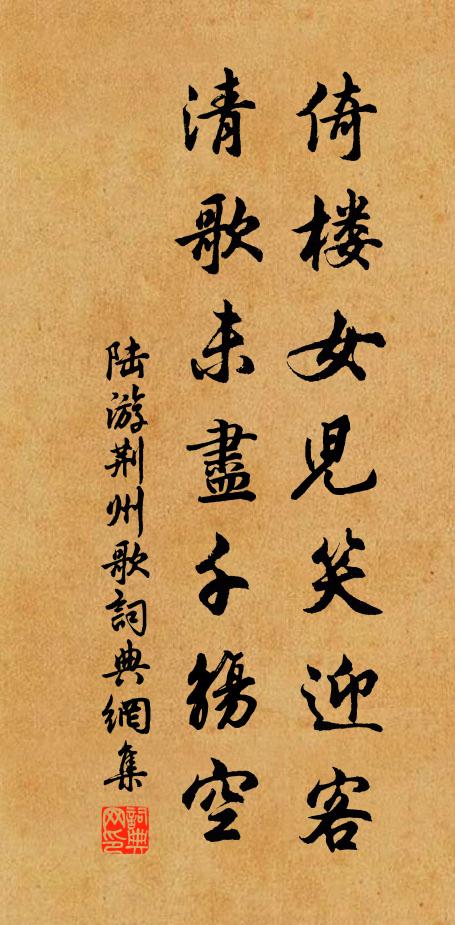 倚楼女児笑迎客
清歌未盡千觴空
陆游荆州歌詞典網集
詞典网印